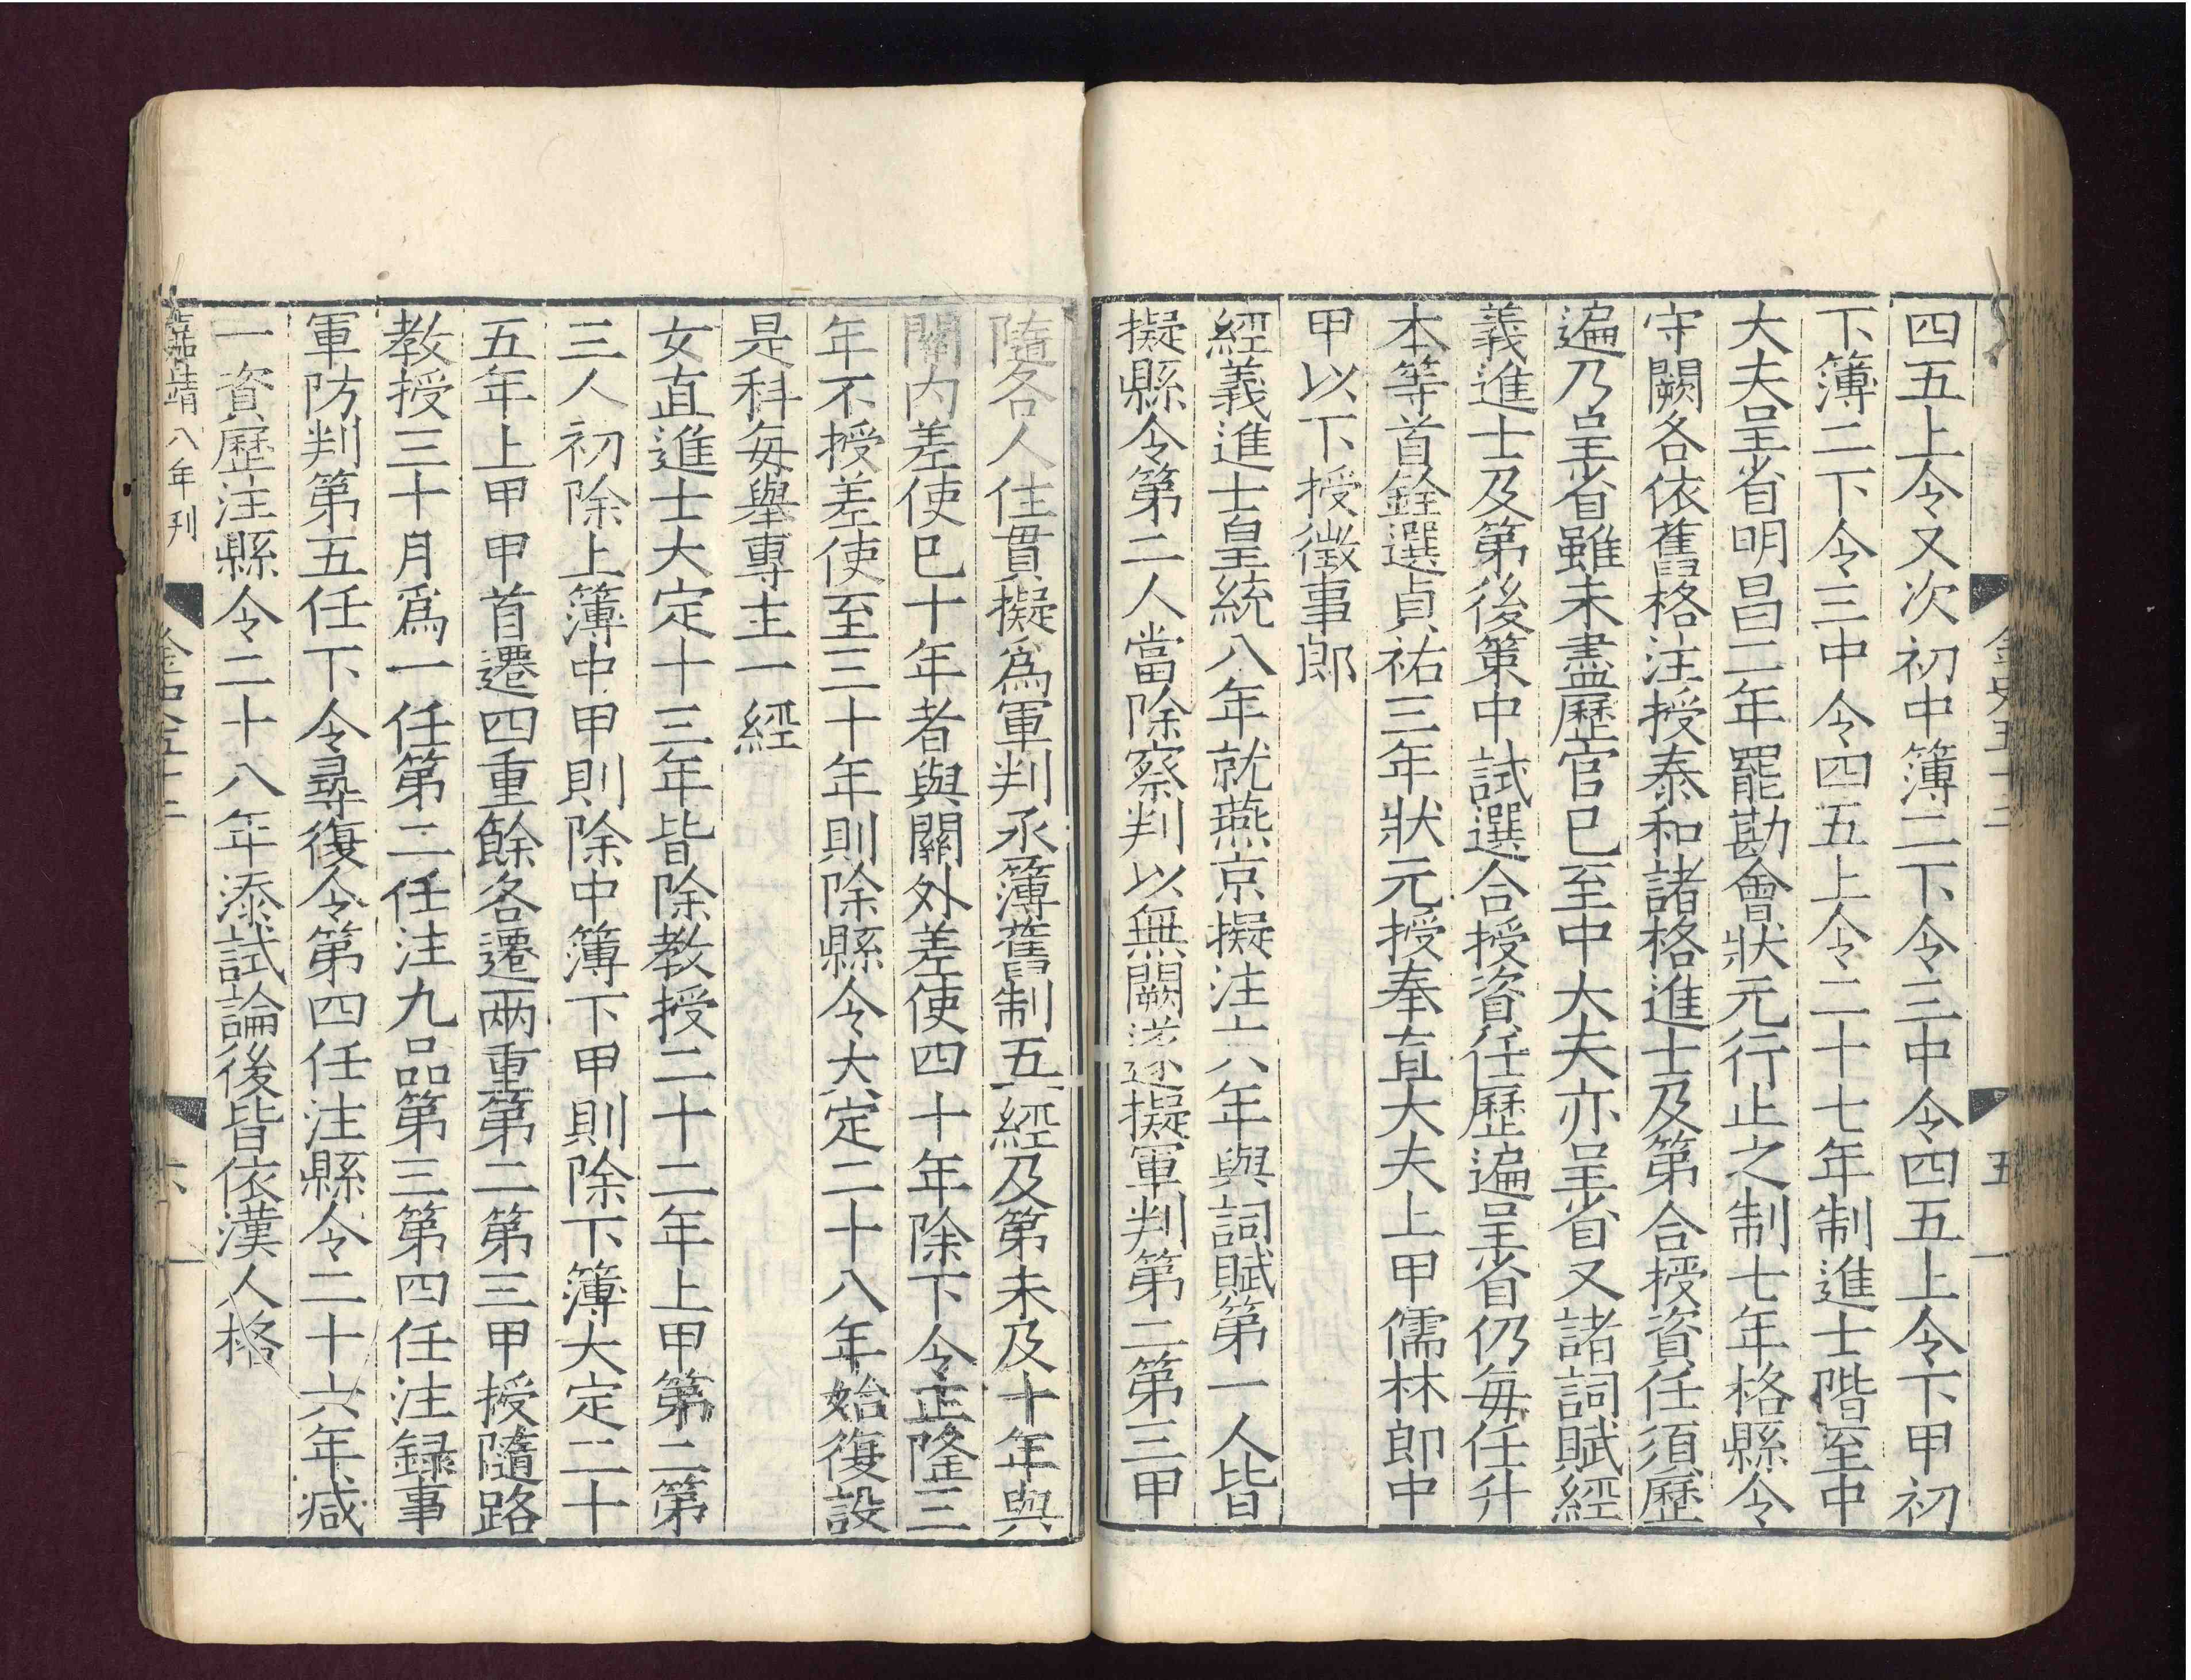 金史五十二
五
四五上令又次初中簿二下令三中令四五上令下甲初
下簿二下令三中令四五上令二十七年制進士階至中
大夫呈省明昌二年罷勘會狀元行止之制七年格縣令
守闕各依舊格注授泰和諸格進士及第合授資任須歷
遍乃呈省雖未盡歷官已至中大夫亦呈省又諸詞賦經
義進士及第後策中試選合授資任歷遍呈省仍每任升
本等首銓選貞祐三年狀元授奉直大夫上甲儒林郎中
甲以下授徵事郎
經義進士皇統八年就燕京擬注六年與詞賦第一人皆
擬縣令第二人當除察判以無闕遂擬軍判第二第三甲
隨各人住貫擬爲軍判丞簿舊制五經及第未及十年與
關內差使巳十年者與關外差使四十年除下令正隆三
年不授差使至三十年則除縣令大定二十八年始復設
是科每舉專主一經
女直進士大定十三年皆除教授二十二年上甲第二第
三人初除上簿中甲則除中簿下甲則除下簿大定二十
五年上甲甲首遷四重餘各遷兩重第二第三甲授隨路
教授三十月爲一任第二任注九品第三第四任注録事
軍防判第五任下令尋復令第四任注縣令二十六年减
一資歷注縣令二十八年添試論後皆依漢人格
嘉靖八年刊
金史五十二
六